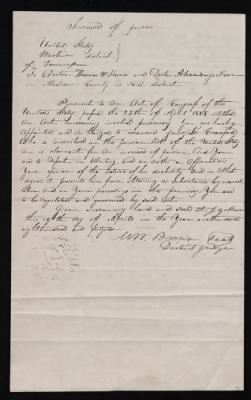 Increased of pension
United States
Western District
of Tennessee
To Doctor Thomas and Doctor Alexander Jackson
in Madison County in said district
Pursuant to An Act of Congress of the
United States, passed the entitled
An Act concerning invalid pensions. You are hereby
Appointed and Authorized to examine Crawford
who is inscribed on the pension list of the United States
An is claimant for An increase of pension And you are
to Report, in Writing, and on oath or affirmation
Your opinion of the nature of his disability and in What
degree it prevents him from Obtaining a Subsistence by manual
labor and in Your proceedings in the premises, You are
to be regulated and governed by said act.
Given under my hand and seal at
this 19 the day of April in the Year one thousand
eight hundred and
Brown Seal
District Judge